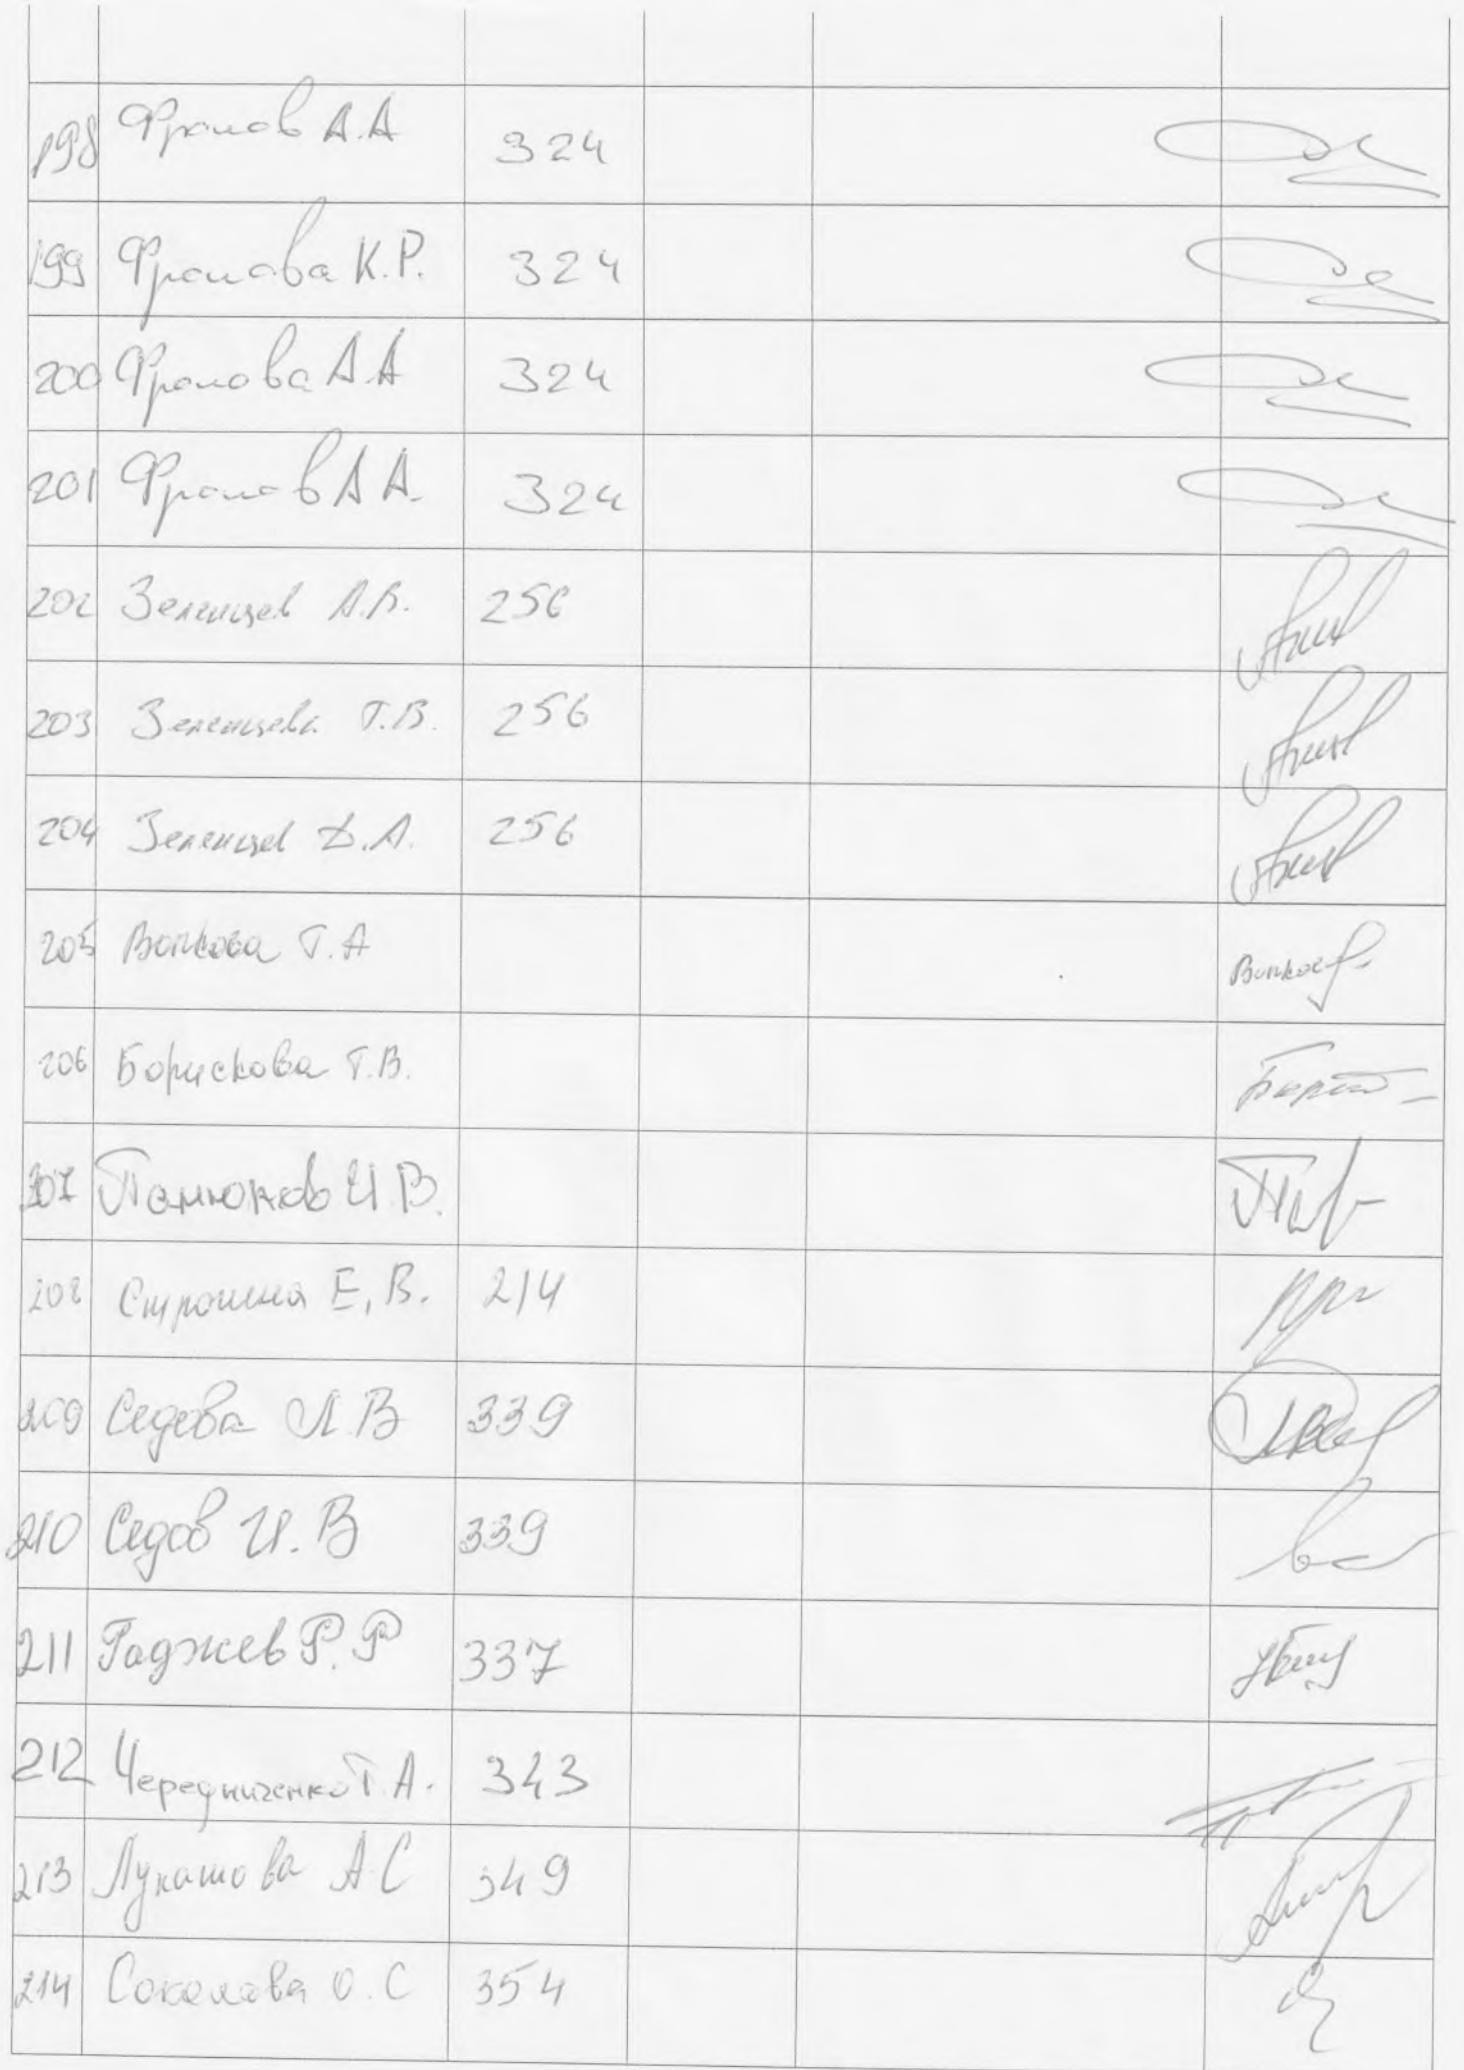 198 Фролов А.А 324
199 Фролова К.Р. 324
200 Фролова А.А 324
201 Фролов А А. 324
202 Зеленцев А.В. 256
203 Зеленцева Т.В. 256
204 Зеленцев Д.А. 256
205 Волкова Т.А
206 Борискова Т.В.
207 И.В.
208 Стронина Е,В. 214
209 Седова Л.В 339
210 Седов И.В 339
211 Гаджиев Р.Р 337
212 Чередниченко Т.А. 343
213 Лукашова А С 349
214 Соколова О.С 354